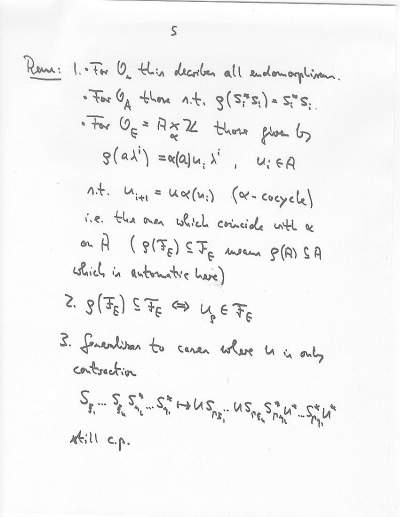 5
Rem: 1. • For O_n this describes all endomorphisms.
• For O_A those s.t. ρ(S_i^* S_i) = S_i^* S_i.
• For O_E = A ⋊_α ℤ those given by
ρ(aλ^i) = α(a)u_i λ^i , u_i ∈ A
s.t. u_{i+1} = uα(u_i) (α-cocycle)
i.e. the ones which coincide with α
on A (ρ(F_E) ⊆ F_E means ρ(A) ⊆ A
which is automatic here)
2. ρ(F_E) ⊆ F_E ⇔ u_ρ ∈ F_E
3. Generalises to cases where u is only
contraction
S_{ξ_1} ... S_{ξ_n} S_{η_n}^* ... S_{η_1}^* ↦ u S_{ρξ_1} .. u S_{ρξ_n} S_{ρη_n}^* u^* ... S_{ρη_1}^* u^*
still c.p.